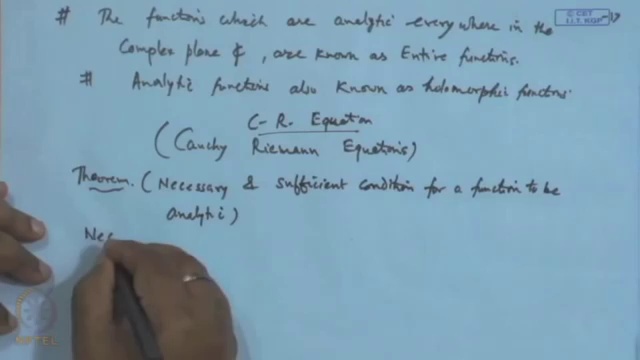 # The functions which are analytic everywhere in the
Complex plane ₵, are known as Entire functions.
# Analytic functions also known as holomorphic functions.
C-R. Equation
(Cauchy Riemann Equations)
Theorem. (Necessary & sufficient condition for a function to be
analytic)
Nec
© CET
I.I.T. KGP
NPTEL